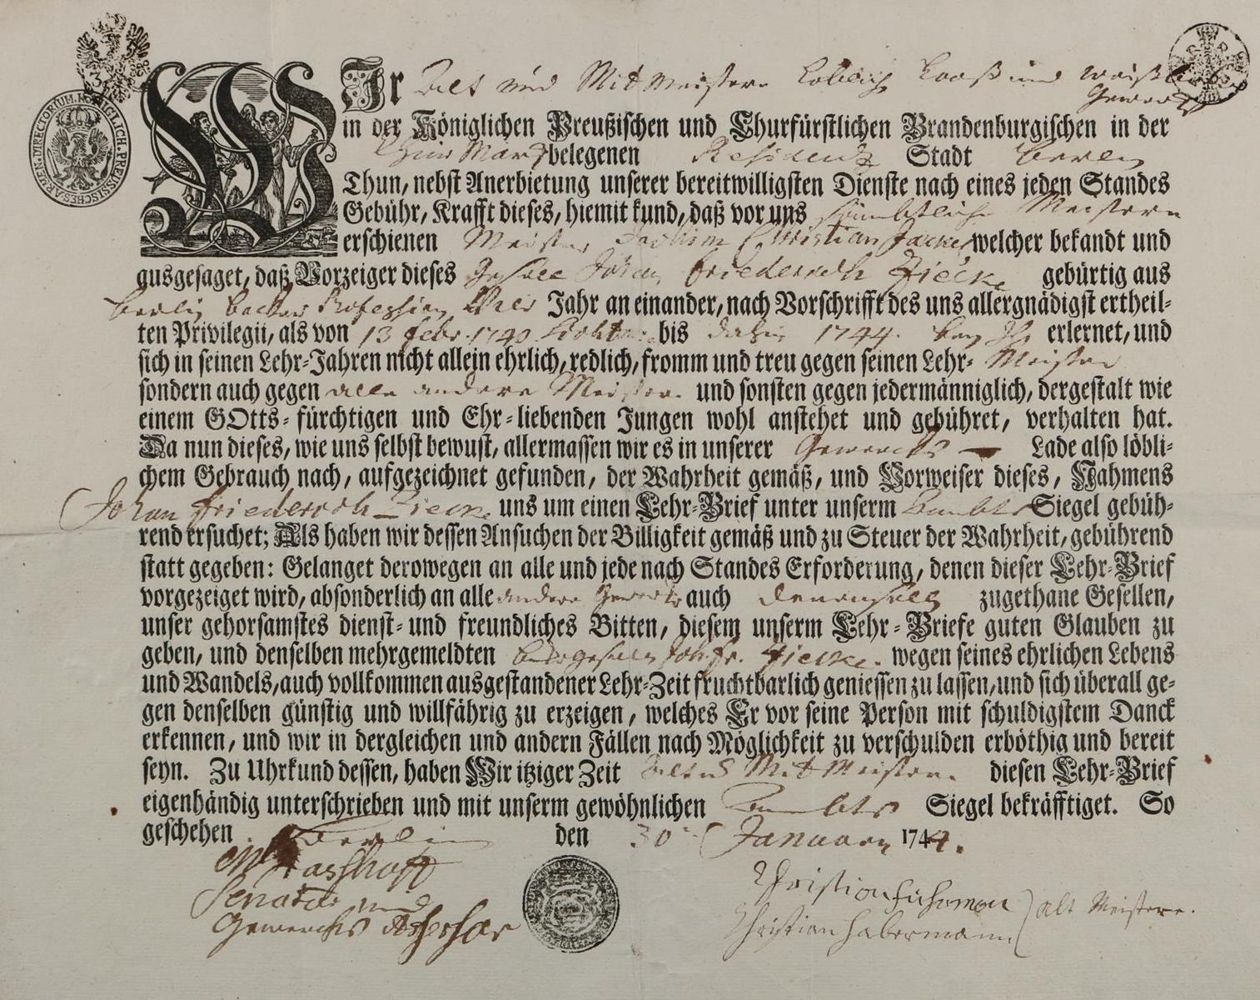 WIr Alt und Mit Meistere
in der Königlichen Preußischen und Churfürstlichen Brandenburgischen in der
Chur Marck belegenen Residentz Stadt Berlin
Thun, nebst Anerbietung unserer bereitwilligsten Dienste nach eines jeden Standes
Gebühr, Krafft dieses, hiemit kund, daß vor uns sämbtliche Meistern
erschienen Meister Christian welcher bekandt und
ausgesaget, daß Vorzeiger dieses Johan Friederich Ziecke gebürtig aus
Berlin Profession Jahr an einander, nach Vorschrifft des uns allergnädigst ertheil-
ten Privilegii, als von 13 Febr. bis dahin 1744. erlernet, und
sich in seinen Lehr-Jahren nicht allein ehrlich, redlich, fromm und treu gegen seinen Lehr- Meister
sondern auch gegen alle andere Meister und sonsten gegen jedermänniglich, dergestalt wie
einem GOtts-fürchtigen und Ehr-liebenden Jungen wohl anstehet und gebühret, verhalten hat.
Da nun dieses, wie uns selbst bewust, allermassen wir es in unserer Gewercks Lade also löbli-
chem Gebrauch nach, aufgezeichnet gefunden, der Wahrheit gemäß, und Vorweiser dieses, Nahmens
Johan Friederich Ziecke uns um einen Lehr-Brief unter unserm Siegel gebüh-
rend ersuchet; Als haben wir dessen Ansuchen der Billigkeit gemäß und zu Steuer der Wahrheit, gebührend
statt gegeben: Gelanget derowegen an alle und jede nach Standes Erforderung, denen dieser Lehr-Brief
vorgezeiget wird, absonderlich an alle andere auch zugethane Gesellen,
unser gehorsamstes dienst- und freundliches Bitten, diesem unserm Lehr-Briefe guten Glauben zu
geben, und denselben mehrgemeldten Joh. Fr. Ziecke. wegen seines ehrlichen Lebens
und Wandels, auch vollkommen ausgestandener Lehr-Zeit fruchtbarlich geniessen zu lassen, und sich überall ge-
gen denselben günstig und willfährig zu erzeigen, welches Er vor seine Person mit schuldigstem Danck
erkennen, und wir in dergleichen und andern Fällen nach Möglichkeit zu verschulden erböthig und bereit
seyn. Zu Uhrkund dessen, haben Wir itziger Zeit Alt und Mit Meistere diesen Lehr-Brief
eigenhändig unterschrieben und mit unserm gewöhnlichen Siegel bekräfftiget. So
geschehen Berlin den 30 Januarii 1744.
Senator und
Gewercks Assessor
Christian
Christian Habermann
Alt Meistere.